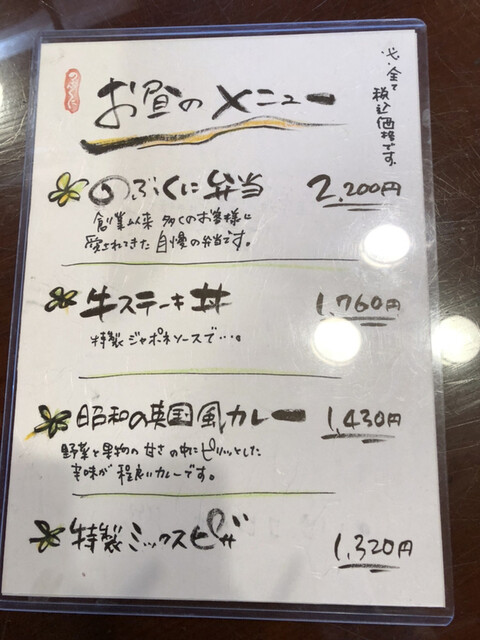 お昼のメニュー
※全て
税込価格です。
のぶくに弁当 2,200円
創業以来 多くのお客様に
愛されてきた 自慢の弁当です。
牛ステーキ丼 1,760円
特製 ジャポネソースで・・・。
昭和の英国風カレー 1,430円
野菜と果物の 甘さの中に ピリッとした
辛味が 程良いカレーです。
特製ミックスピザ 1,320円